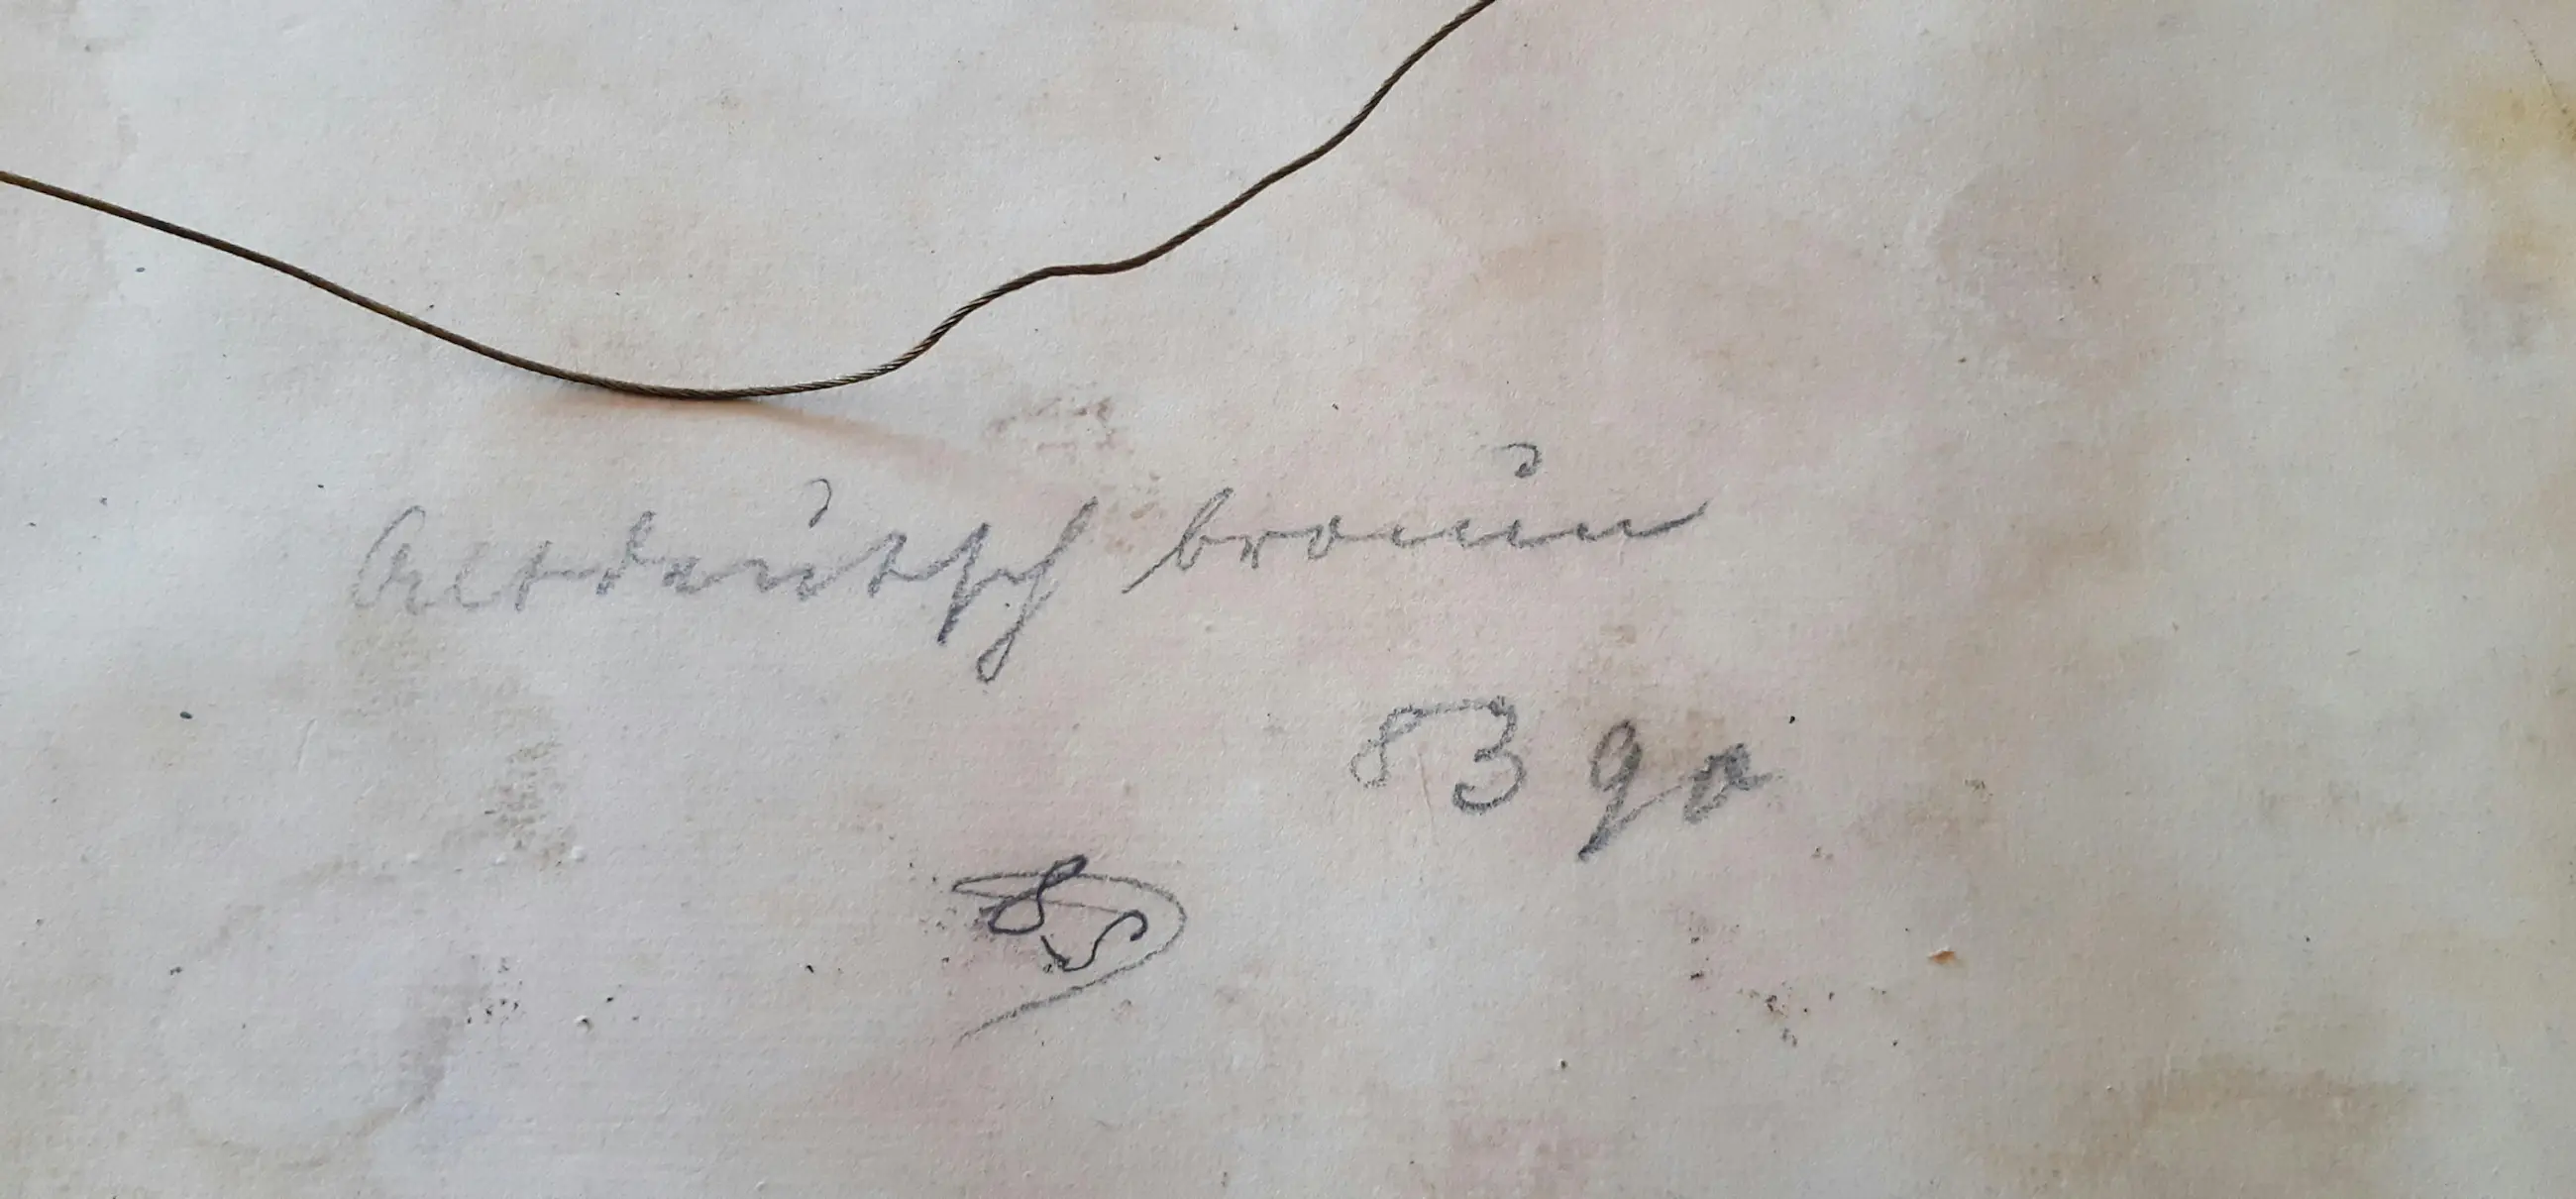 Altdeutsch braun
83 90